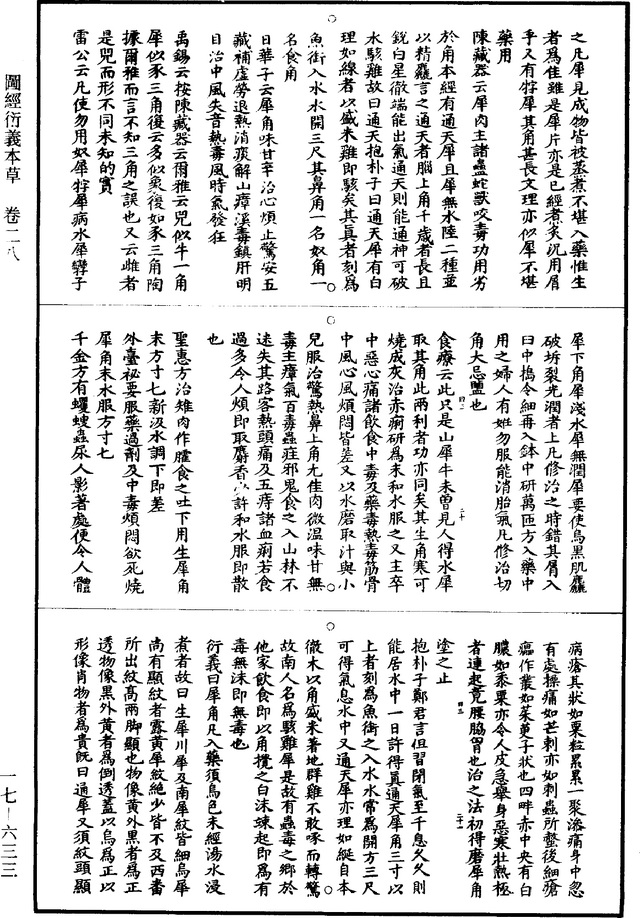 之凡犀見成物皆被蒸煮不堪入藥惟生
者爲佳雖是犀片亦是已經煮炙況用屑
乎又有牸犀其角甚長文理亦似犀不堪
藥用
陳藏器云犀肉主諸蠱蛇獸咬毒功用劣
於角本經有通天犀且犀無水陸二種並
以精麤言之通天者腦上角千歲者長且
銳白星徹端能出氣通天則能通神可破
水駭雞故曰通天抱朴子曰通天犀有白
理如線者以盛米雞即駭矣其真者刻爲
魚銜入水水開三尺其鼻角一名奴角一
名食角
日華子云犀角味甘辛治心煩止驚安五
藏補虛勞退熱消痰解山瘴溪毒鎮肝明
目治中風失音熱毒風時氣發狂
禹錫云按陳藏器云爾雅云兕似牛一角
犀似豕三角復云多似象復如豕三角陶
據爾雅而言不知三角之誤也又云雌者
是兕而形不同未知的實
雷公云凡使勿用奴犀牸犀病水犀孿子
犀下角犀淺水犀無潤犀要使烏黑肌麤
皴坼裂光潤者上凡修治之時錯其屑入
臼中搗令細再入鉢中研萬匝方入藥中
用之婦人有妊勿服能消胎氣凡修治切
角大忌鹽也
食療云此只是山犀牛未曾見人得水犀
取其角此兩利者功亦同矣其生角寒可
燒成灰治赤痢研爲末和水服之又主卒
中惡心痛諸飲食中毒及藥毒熱毒筋骨
中風心風煩悶皆差又以水磨取汁與小
兒服治驚熱鼻上角尤佳肉微溫味甘無
毒主瘴氣百毒蠱疰邪鬼食之入山林不
迷失其路客熱頭痛及五痔諸血痢若食
過多令人煩即取麝香少許和水服即散
也
聖惠方治雉肉作臛食之吐下用生犀角
末方寸七新汲水調下即差
外臺祕要服藥過劑及中毒煩悶欲死燒
犀角末水服方寸七
千金方有蠷螋蟲尿人影著處便令人體
病瘡其狀如粟粒累累一聚滲痛身中忽
有處操痛如芒刺亦如刺蟲所螫後細瘡
瘟作叢如茱萸子狀也四畔赤中央有白
膿如黍粟亦令人皮急舉身惡寒壯熱極
者連起竟腰脇胷也治之法初得磨犀角
塗之止
抱朴子鄭君言但習閉氣至千息久久則
能居水中一日許得真通天犀角三寸以
上者刻爲魚銜之入水水常爲開方三尺
可得氣息水中又通天犀赤理如綖自本
徹末以角盛米著地群雞不敢啄而轉驚
故南人名爲駭雞犀是故有蟲毒之鄉於
他家飲食即以角攪之白沫竦起即爲有
毒無沫即無毒也
衍義曰犀角凡入藥須烏色未經湯水浸
煮者故曰生犀川犀及南犀紋皆細烏犀
尚有顯紋者露黃犀紋絕少皆不及西番
所出紋高兩腳顯也物像黃外黑者爲正
透物像黑外黃者爲倒透蓋以烏爲正以
形像肖物者爲貴既曰通犀又須紋頭顯
圖經衍義本草 卷二八
一七—六三三